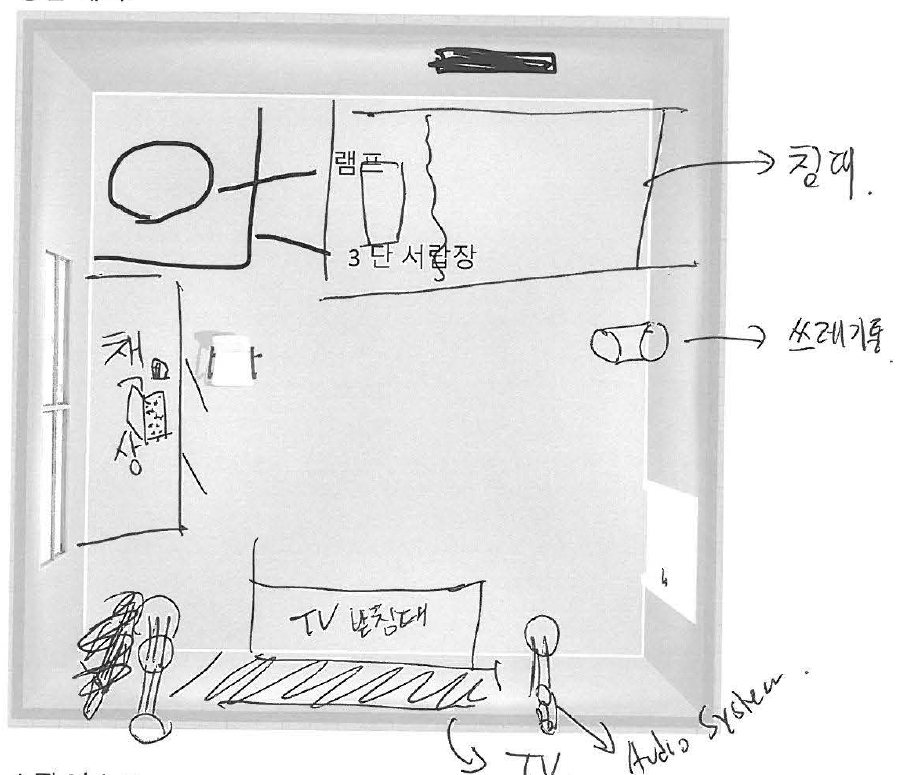 램프
침대.
3단 서랍장
쓰레기통.
책상
TV 받침대
TV.
Audio System.